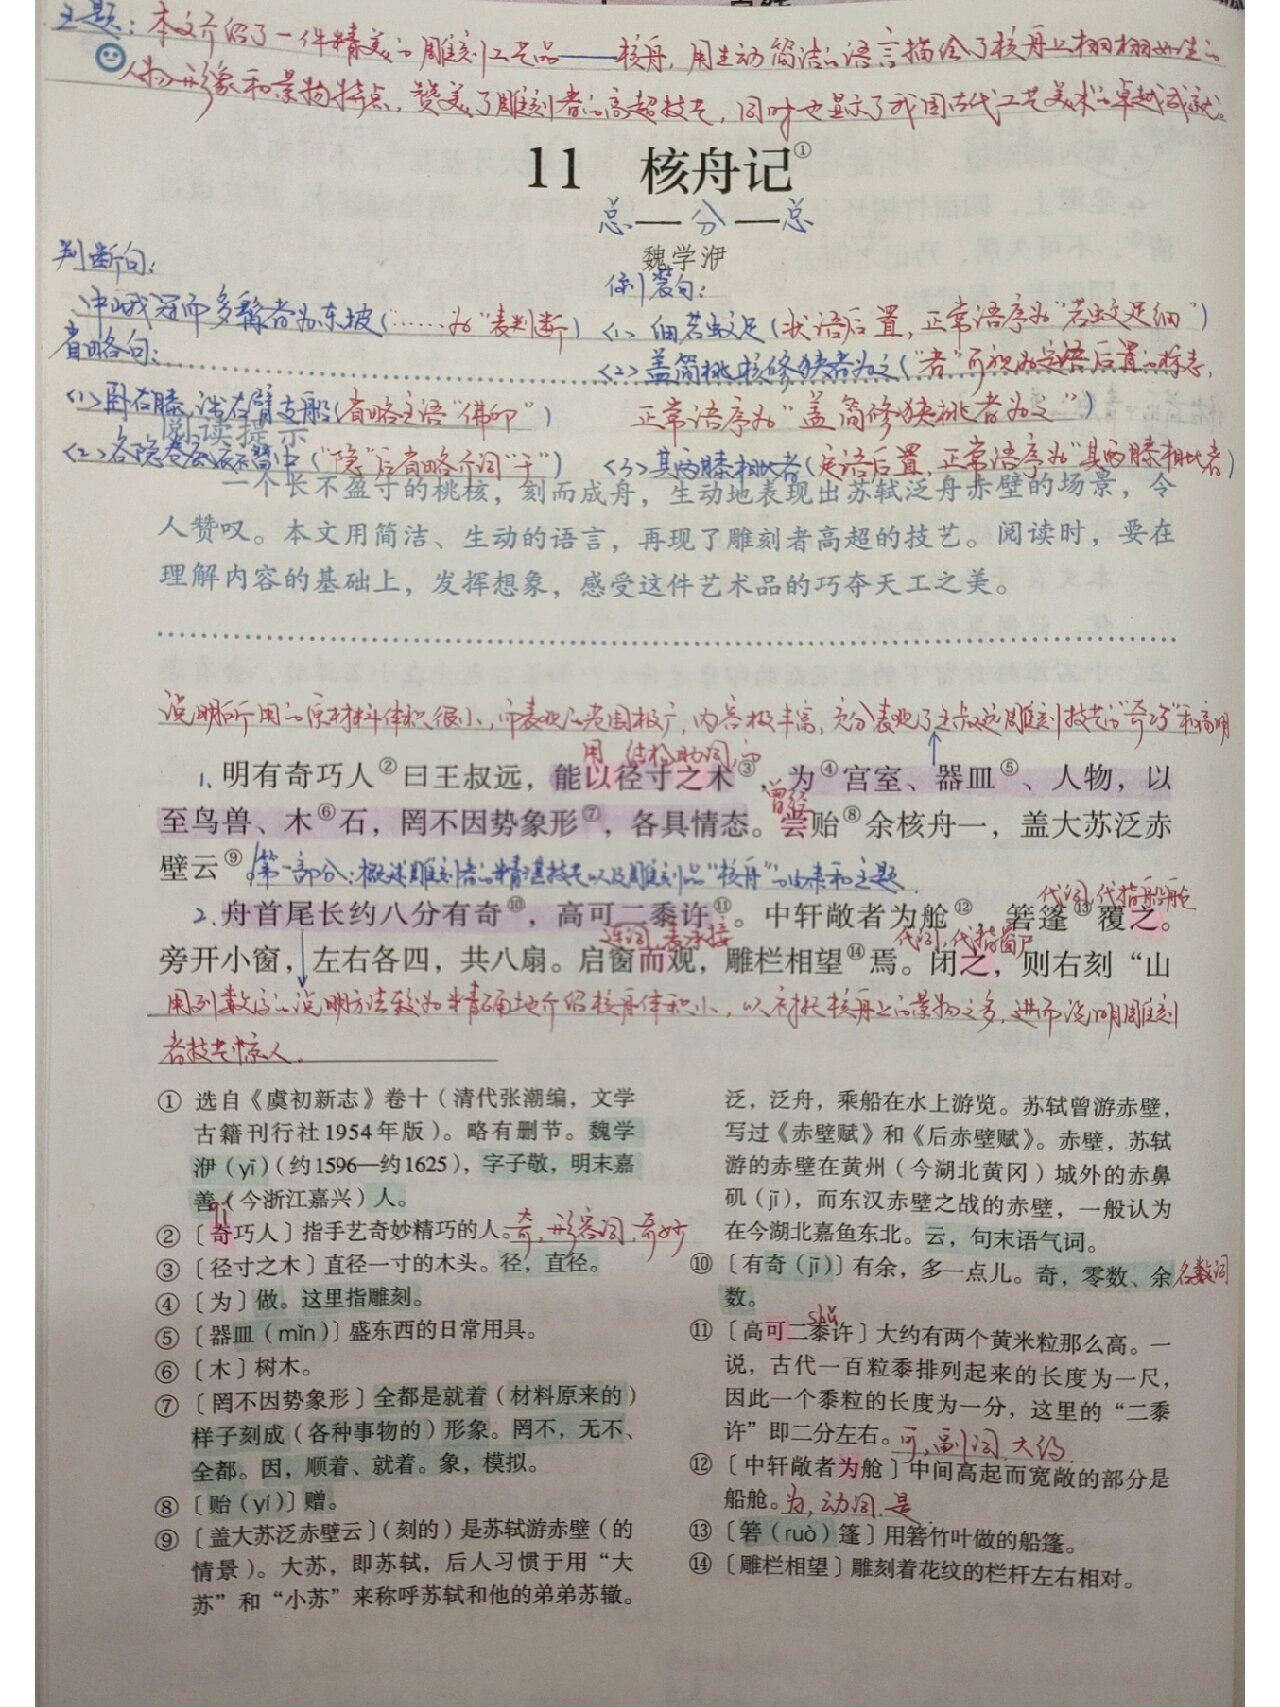 主题：本文介绍了一件精美的雕刻工艺品——核舟，用生动简洁的语言描绘了核舟上栩栩如生的
人物形象和景物特点，赞美了雕刻者的高超技艺，同时也显示了我国古代工艺美术的卓越成就。
11 核舟记①
总—分—总
魏学洢
判断句：
倒装句：
中峨冠而多髯者为东坡（“……为”表判断）
<1>细若蚊足（状语后置，正常语序为“若蚊足细”）
省略句：
<2>盖简桃核修狭者为之（“者”可视为定语后置的标志，
<1>卧右膝，诎右臂支船（省略主语“佛印”）
正常语序为“盖简修狭桃者为之”）
阅读提示
<2>各隐卷底衣褶中（“隐”后省略介词“于”）
<3>其两膝相比者（定语后置，正常语序为“其两膝相比者）
一个长不盈寸的桃核，刻而成舟，生动地表现出苏轼泛舟赤壁的场景，令
人赞叹。本文用简洁、生动的语言，再现了雕刻者高超的技艺。阅读时，要在
理解内容的基础上，发挥想象，感受这件艺术品的巧夺天工之美。
说明所用的原材料体积很小，而表现的范围极广，内容极丰富，充分表现了王叔远雕刻技艺的“奇巧”和高明
用 结构助词，的
1.明有奇巧人②曰王叔远，能以径寸之木③，为④宫室、器皿⑤、人物，以
曾经
至鸟兽、木⑥石，罔不因势象形⑦，各具情态。尝贻⑧余核舟一，盖大苏泛赤
壁云⑨。第一部分：概述雕刻者的精湛技艺以及雕刻品“核舟”的由来和主题。
代词，代指船舱
2.舟首尾长约八分有奇⑩，高可二黍许⑪。中轩敞者为舱⑫，箬篷⑬覆之。
连词，表承接 代词，代指窗户
旁开小窗，左右各四，共八扇。启窗而观，雕栏相望⑭焉。闭之，则右刻“山
用列数字的说明方法较为精确地介绍核舟体积小，以衬托核舟上的景物之多，进而说明雕刻
者技艺惊人。
① 选自《虞初新志》卷十（清代张潮编，文学
古籍刊行社1954年版）。略有删节。魏学
洢（yī）（约1596—约1625），字子敬，明末嘉
善（今浙江嘉兴）人。
qí
② 〔奇巧人〕指手艺奇妙精巧的人。奇，形容词，奇妙
③ 〔径寸之木〕直径一寸的木头。径，直径。
④ 〔为〕做。这里指雕刻。
⑤ 〔器皿（mǐn）〕盛东西的日常用具。
⑥ 〔木〕树木。
⑦ 〔罔不因势象形〕全都是就着（材料原来的）
样子刻成（各种事物的）形象。罔不，无不、
全都。因，顺着、就着。象，模拟。
⑧ 〔贻（yí）〕赠。
⑨ 〔盖大苏泛赤壁云〕（刻的）是苏轼游赤壁（的
情景）。大苏，即苏轼，后人习惯于用“大
苏”和“小苏”来称呼苏轼和他的弟弟苏辙。
泛，泛舟，乘船在水上游览。苏轼曾游赤壁，
写过《赤壁赋》和《后赤壁赋》。赤壁，苏轼
游的赤壁在黄州（今湖北黄冈）城外的赤鼻
矶（jī），而东汉赤壁之战的赤壁，一般认为
在今湖北嘉鱼东北。云，句末语气词。
⑩ 〔有奇（jī）〕有余，多一点儿。奇，零数、余
数。
名数词
shǔ
⑪ 〔高可二黍许〕大约有两个黄米粒那么高。一
说，古代一百粒黍排列起来的长度为一尺，
因此一个黍粒的长度为一分，这里的“二黍
许”即二分左右。可，副词，大约
⑫ 〔中轩敞者为舱〕中间高起而宽敞的部分是
船舱。为，动词，是
⑬ 〔箬（ruò）篷〕用箬竹叶做的船篷。
⑭ 〔雕栏相望〕雕刻着花纹的栏杆左右相对。